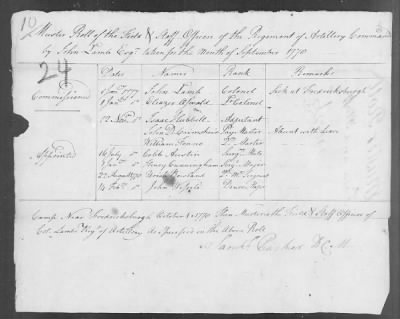 10
Muster Roll of the Field & Staff Officers of the Regiment of Artillery Commanded
by John Lamb Esqr. taken for the Month of September 1778
24
Dates Names Rank Remarks
Commissioned
1 Jany 1777 John Lamb Colonel Sick at Fredericksburgh
1 Jany Do Eleazer Oswald Lt Colonel
12 Novr Do Isaac Hubbell Adjutant
John D Crimshier Pay Master Absent with leave
William Fenno Qr Master
Appointed
16 July Do Caleb Austin Surgns Mate
Do Henry Cunningham Serjt Major
22 August 1778 Qr Mr Serjeant
14 Feby Do John Drum Major
Camp Near Fredericksburgh October 1778 Then Mustered the Field & Staff Officers of
Col. Lamb's Regt of Artillery As Specified in the Above Roll